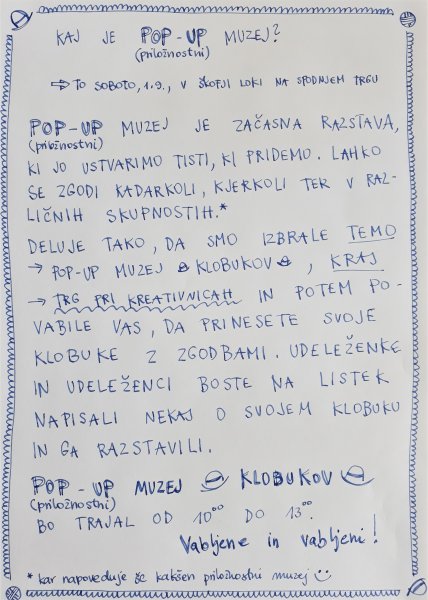 KAJ JE POP-UP MUZEJ?
(priložnostni)
⇒ TO SOBOTO, 1.9., V ŠKOFJI LOKI NA SPODNJEM TRGU
POP-UP MUZEJ JE ZAČASNA RAZSTAVA,
(priložnostni)
KI JO USTVARIMO TISTI, KI PRIDEMO. LAHKO
SE ZGODI KADARKOLI, KJERKOLI TER V RAZ-
LIČNIH SKUPNOSTIH.*
DELUJE TAKO, DA SMO IZBRALE TEMO
→ POP-UP MUZEJ KLOBUKOV, KRAJ
→ TRG PRI KREATIVNICAH IN POTEM PO-
VABILE VAS, DA PRINESETE SVOJE
KLOBUKE Z ZGODBAMI. UDELEŽENKE
IN UDELEŽENCI BOSTE NA LISTEK
NAPISALI NEKAJ O SVOJEM KLOBUKU
IN GA RAZSTAVILI.
POP-UP MUZEJ KLOBUKOV
(priložnostni)
BO TRAJAL OD 10⁰⁰ DO 13⁰⁰.
Vabljene in vabljeni!
* kar napoveduje še kakšen priložnostni muzej ☺